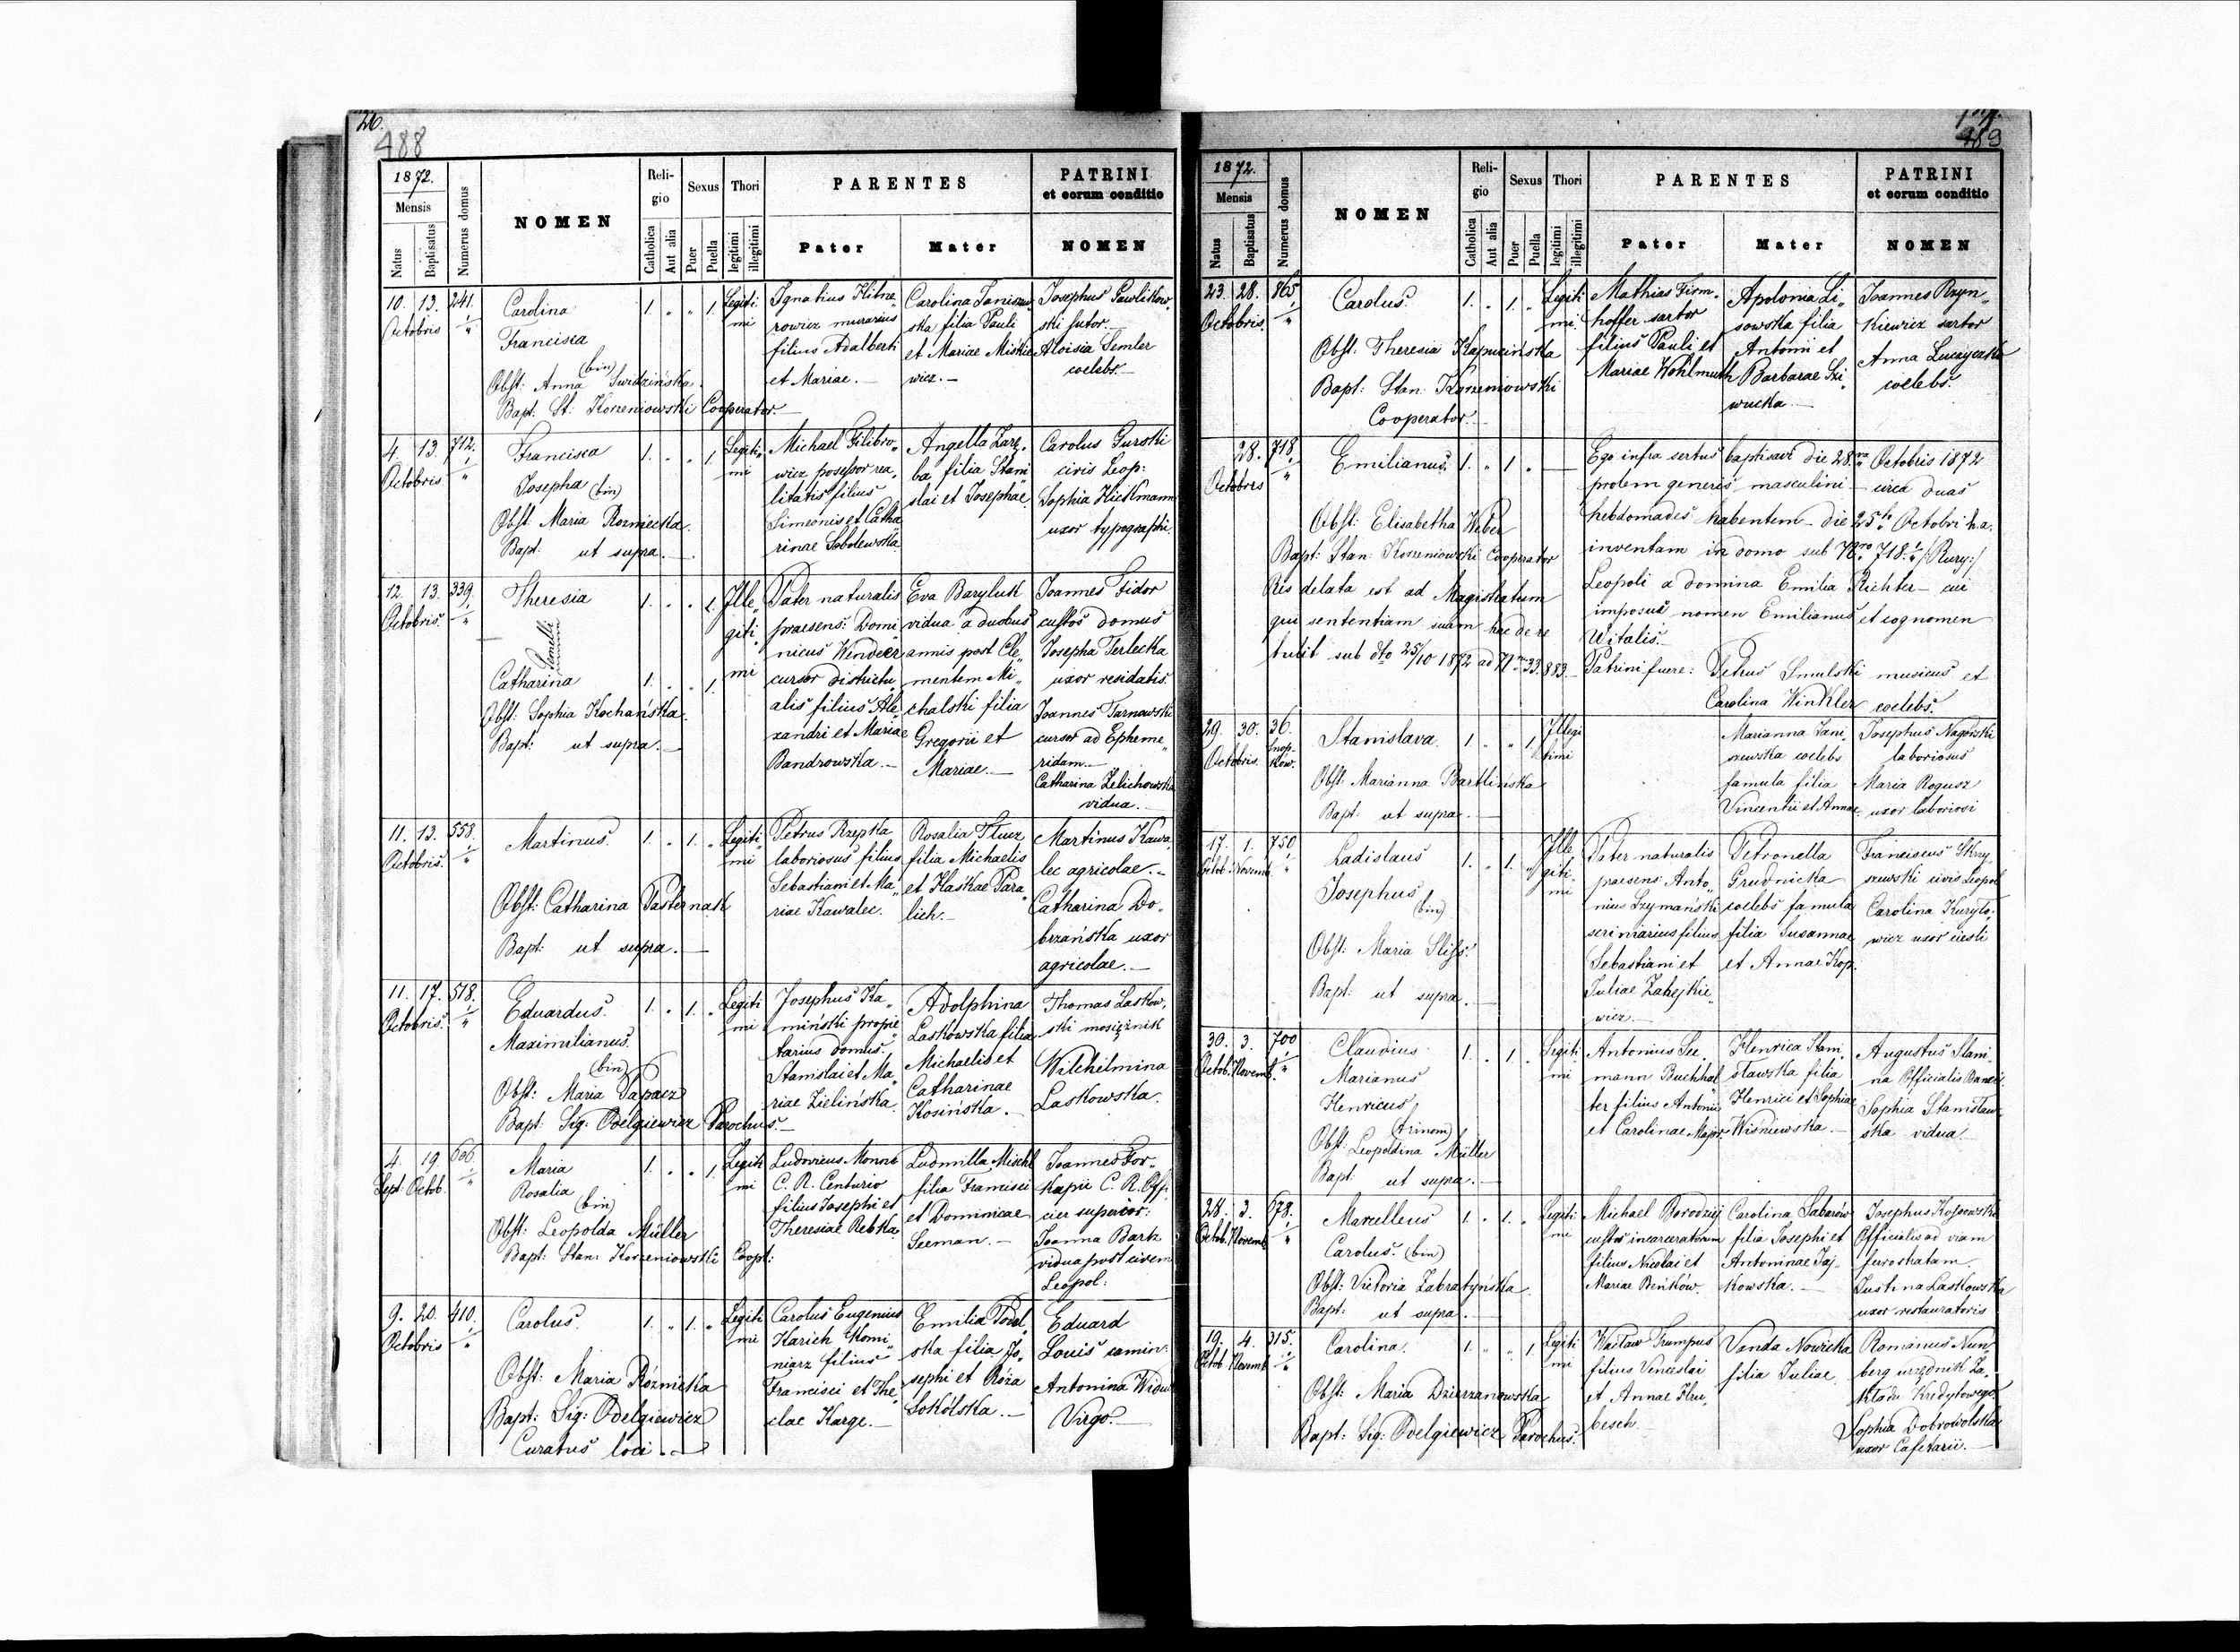 26.
488
1872.
Mensis
Natus
Baptisatus
Numerus domus
NOMEN
Reli-
gio
Catholica
Aut alia
Sexus
Puer
Puella
Thori
legitimi
illegitimi
PARENTES
Pater
Mater
PATRINI
et eorum conditio
NOMEN
10. 13. 241.
Octobris
Carolina
Francisca
(bin)
Obst: Anna Swidzińska.
Bapt: St: Korzeniowski Cooperator
1. 1.
Legiti
mi
Ignatius Hibne„
rowicz murarius
filius Adalberti
et Mariae.
Carolina Janiszew
ska filia Pauli
et Mariae Miskie
wicz.
Josephus Pawlikow„
ski sutor
Aloisia Semler
coelebs.
4. 13. 712.
Octobris
Francisca
Josepha (bin)
Obst: Maria Rozniecka.
Bapt: ut supra.
1. 1.
Legiti„
mi
Michael Filibro„
wicz possessor rea„
litatis filius
Simeonis et Catha
rinae Sobolewska
Angella Zarę„
ba filia Stani
slai et Josephae
Carolus Gurski
civis Leop:
Sophia Hickmann
uxor typographi.
12. 13. 339.
Octobris.
Theresia
Gemelli
Catharina
Obst: Sophia Kochańska.
Bapt: ut supra.
1. 1.
1. 1.
Ille„
giti„
mi
Pater naturalis
praesens: Domi
nicus Wender
cursor districtu
alis filius Ale
xandri et Mariae
Bandrowska.
Eva Baryluk
vidua a duobus
annis post Cle„
mentem Mi„
chalski filia
Gregorii et
Mariae.
Joannes Sidor
custos domus
Josepha Terlecka
uxor residatis.
Joannes Tarnowski
cursor ad Epheme„
ridam.
Catharina Zelichowska
vidua.
11. 13. 558.
Octobris.
Martinus.
Obst: Catharina Pasternak
Bapt: ut supra.
1. 1.
Legiti„
mi
Petrus Rzepka
laboriosus filius
Sebastiani et Ma„
riae Kawalec.
Rosalia Tłucz
filia Michaelis
et Haskae Para„
lich.
Martinus Kawa„
lec agricolae.
Catharina Do„
brzańska uxor
agricolae.
11. 17. 518.
Octobris.
Eduardus.
Maximilianus.
(bin)
Obst: Maria Papaez
Bapt: Sig: Odelgiewicz Parochus.
1. 1.
Legiti
mi
Josephus Ka„
miński proprie
tarius domus.
Stanislai et Ma„
riae Zielińska.
Adolphina
Laskowska filia
Michaelis et
Catharinae
Kosińska.
Thomas Laskow„
ski mosiężnik
Wilchelmina
Laskowska.
4. 19. 606.
Sept. Octob.
Maria
Rosalia
(bin)
Obst: Leopolda Müller
Bapt: Stan: Korzeniowski Coopt:
1. 1.
Legiti
mi
Ludovicus Monné
C. R. Centurio
filius Josephi et
Theresiae Rebka
Ludmilla Mischl
filia Francisci
et Dominicae
Seeman.
Joannes For„
kapić C. R. Offi„
cier superior:
Joanna Bark
vidua post civem
Leopol:
9. 20. 410.
Octobris
Carolus.
Obst: Maria Róźnicka
Bapt: Sig: Odelgiewicz
Curatus loci.
1. 1.
Legiti
mi
Carolus Eugenius
Harich Komi„
niarz filius
Francisci et The„
clae Karge.
Emilia Podol„
ska filia Jo„
sephi et Róża
Sokólska.
Eduard
Louis camin:
Antonina Widu
Virgo.
489
1872.
Mensis
Natus
Baptisatus
Numerus domus
NOMEN
Reli-
gio
Catholica
Aut alia
Sexus
Puer
Puella
Thori
legitimi
illegitimi
PARENTES
Pater
Mater
PATRINI
et eorum conditio
NOMEN
23. 28. 865
Octobris.
Carolus.
Obst: Theresia Kapucińska
Bapt: Stan: Korzeniowski
Cooperator.
1. 1.
Legiti
mi.
Mathias Firm„
hoffer sartor
filius Pauli et
Mariae Wohlmuth
Apolonia Li„
sowska filia
Antonii et
Barbarae Ski„
wucka
Joannes Ryn„
kiewicz sartor
Anna Łuczycka
coelebs.
28. 718.
Octobris
Emilianus.
Obst: Elisabetha Weber
Bapt: Stan: Korzeniowski Cooperator
Res delata est ad Magistratum
qui sententiam suam hac de re
tulit sub dto 25/10 1872 ad Nrm 33.883.
1. 1.
Ego infra sertus baptisavi die 28va Octobris 1872
prolem generis masculini circa duas
hebdomades habentem die 25ta Octobri h.a.
inventam in domo sub Nro 718 /:Rury:/
Leopoli a domina Emilia Richter cui
imposui nomen Emilianus et cognomen
Witalis.
Patrini fuere: Petrus Smulski musicus et
Carolina Winkler coelebs.
29. 30. 36.
Octobris. Snop„
kow.
Stanislava.
Obst: Marianna Bartlińska
Bapt: ut supra.
1. 1.
Illegi
timi
Marianna Jani„
szewska coelebs
famula filia
Vincentii et Annae
Josephus Nagórski
laboriosus
Maria Rogusz
uxor laboriosi
17. 1. 750
Octob. Novemb.
Ladislaus
Josephus
(bin)
Obst: Maria Sliss.
Bapt: ut supra.
1. 1.
Ille
giti„
mi
Pater naturalis
praesens Anto„
nius Szymański
scriniarius filius
Sebastiani et
Juliae Zahejkie„
wicz.
Petronella
Grudnicka
coelebs famula
filia Susannae
et Annae Kop.
Franciscus Skrzy„
szewski civis Leopol
Carolina Kuryło„
wicz uxor
30. 3. 700
Octob. Novemb.
Claudius
Marianus
Henricus
(trinom)
Obst: Leopoldina Müller
Bapt: ut supra.
1. 1.
Legiti
mi
Antonius See„
mann Buchhal„
ter filius Antonii
et Carolinae Majer.
Henrica Stani„
sławska filia
Henrici et Sophiae
Wiśniewska.
Augustus Slani„
na Officialis Banci.
Sophia Stanisław„
ska vidua.
28. 3. 678.
Octob. Novemb.
Marcelleus
Carolus. (bin)
Obst: Victoria Zabratyńska.
Bapt: ut supra.
1. 1.
Legiti
mi
Michael Borodziej
custos incarceratorum
filius Nicolai et
Mariae Beńków.
Carolina Sabarów
filia Josephi et
Antoninae Jaj„
kowska.
Josephus Kossowski
Officialis ad viam
ferostratam.
Justina Laskowska
uxor restauratoris
19. 4. 315.
Octob. Novemb.
Carolina.
Obst: Maria Dzierzanowska
Bapt: Sig: Odelgiewicz Parochus.
1. 1
Legiti
mi
Wacław Trumpus
filius Venceslai
et Annae Hru„
besch.
Vanda Nowicka
filia Juliae
Romanus Nun„
berg urzędnik Za„
kładu Kredytowego.
Sophia Dobrowolska
uxor Cafetarii.